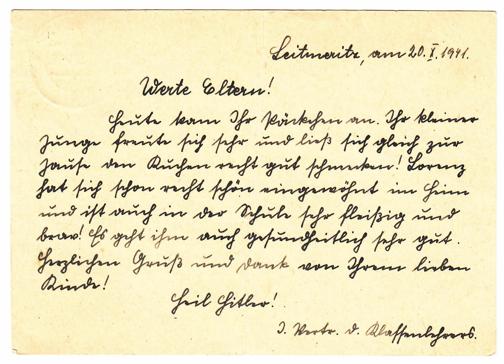 Leitmeritz, am 20. X. 1941.
Werte Eltern!
Heute kam Ihr Päckchen an. Ihr kleiner
Junge freute sich sehr und ließ sich gleich zur
Jause den Kuchen recht gut schmecken! Lorenz
hat sich schon recht schön eingewöhnt im Heim
und ist auch in der Schule sehr fleißig und
brav! Es geht ihm auch gesundheitlich sehr gut.
Herzlichen Gruß und Dank von Ihrem lieben
Kinde!
Heil Hitler!
I. Vertr. d. Klassenlehrers.